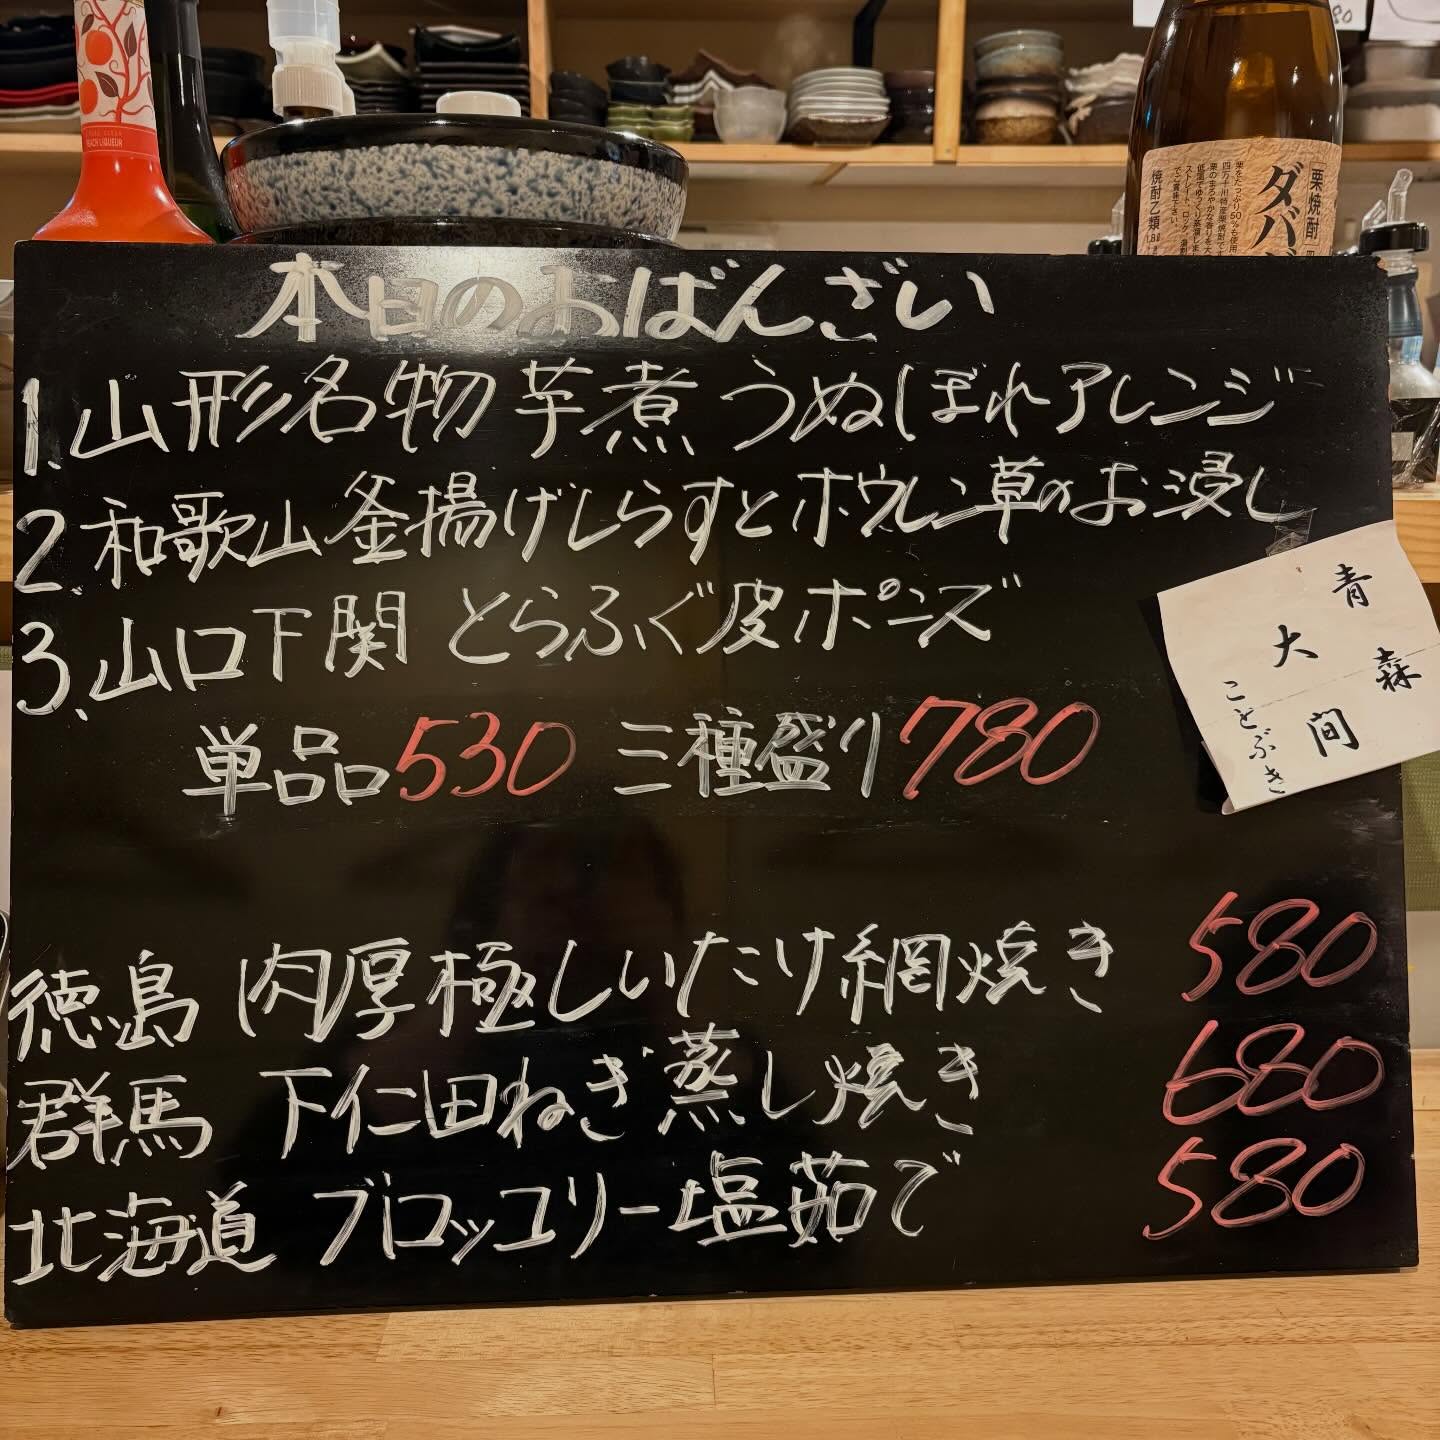 PEACH LIQUEUR
栗焼酎
ダバダ
栗をたっぷり50%も使用
焼酎乙類
本日のおばんざい
1.山形名物 芋煮 うぬぼれアレンジ
2.和歌山 釜揚げしらすとホウレン草のお浸し
3.山口下関 とらふぐ皮ポンズ
単品530 三種盛り780
青森
大間
ことぶき
徳島 肉厚極しいたけ網焼き 580
群馬 下仁田ねぎ蒸し焼き 680
北海道 ブロッコリー塩茹で 580